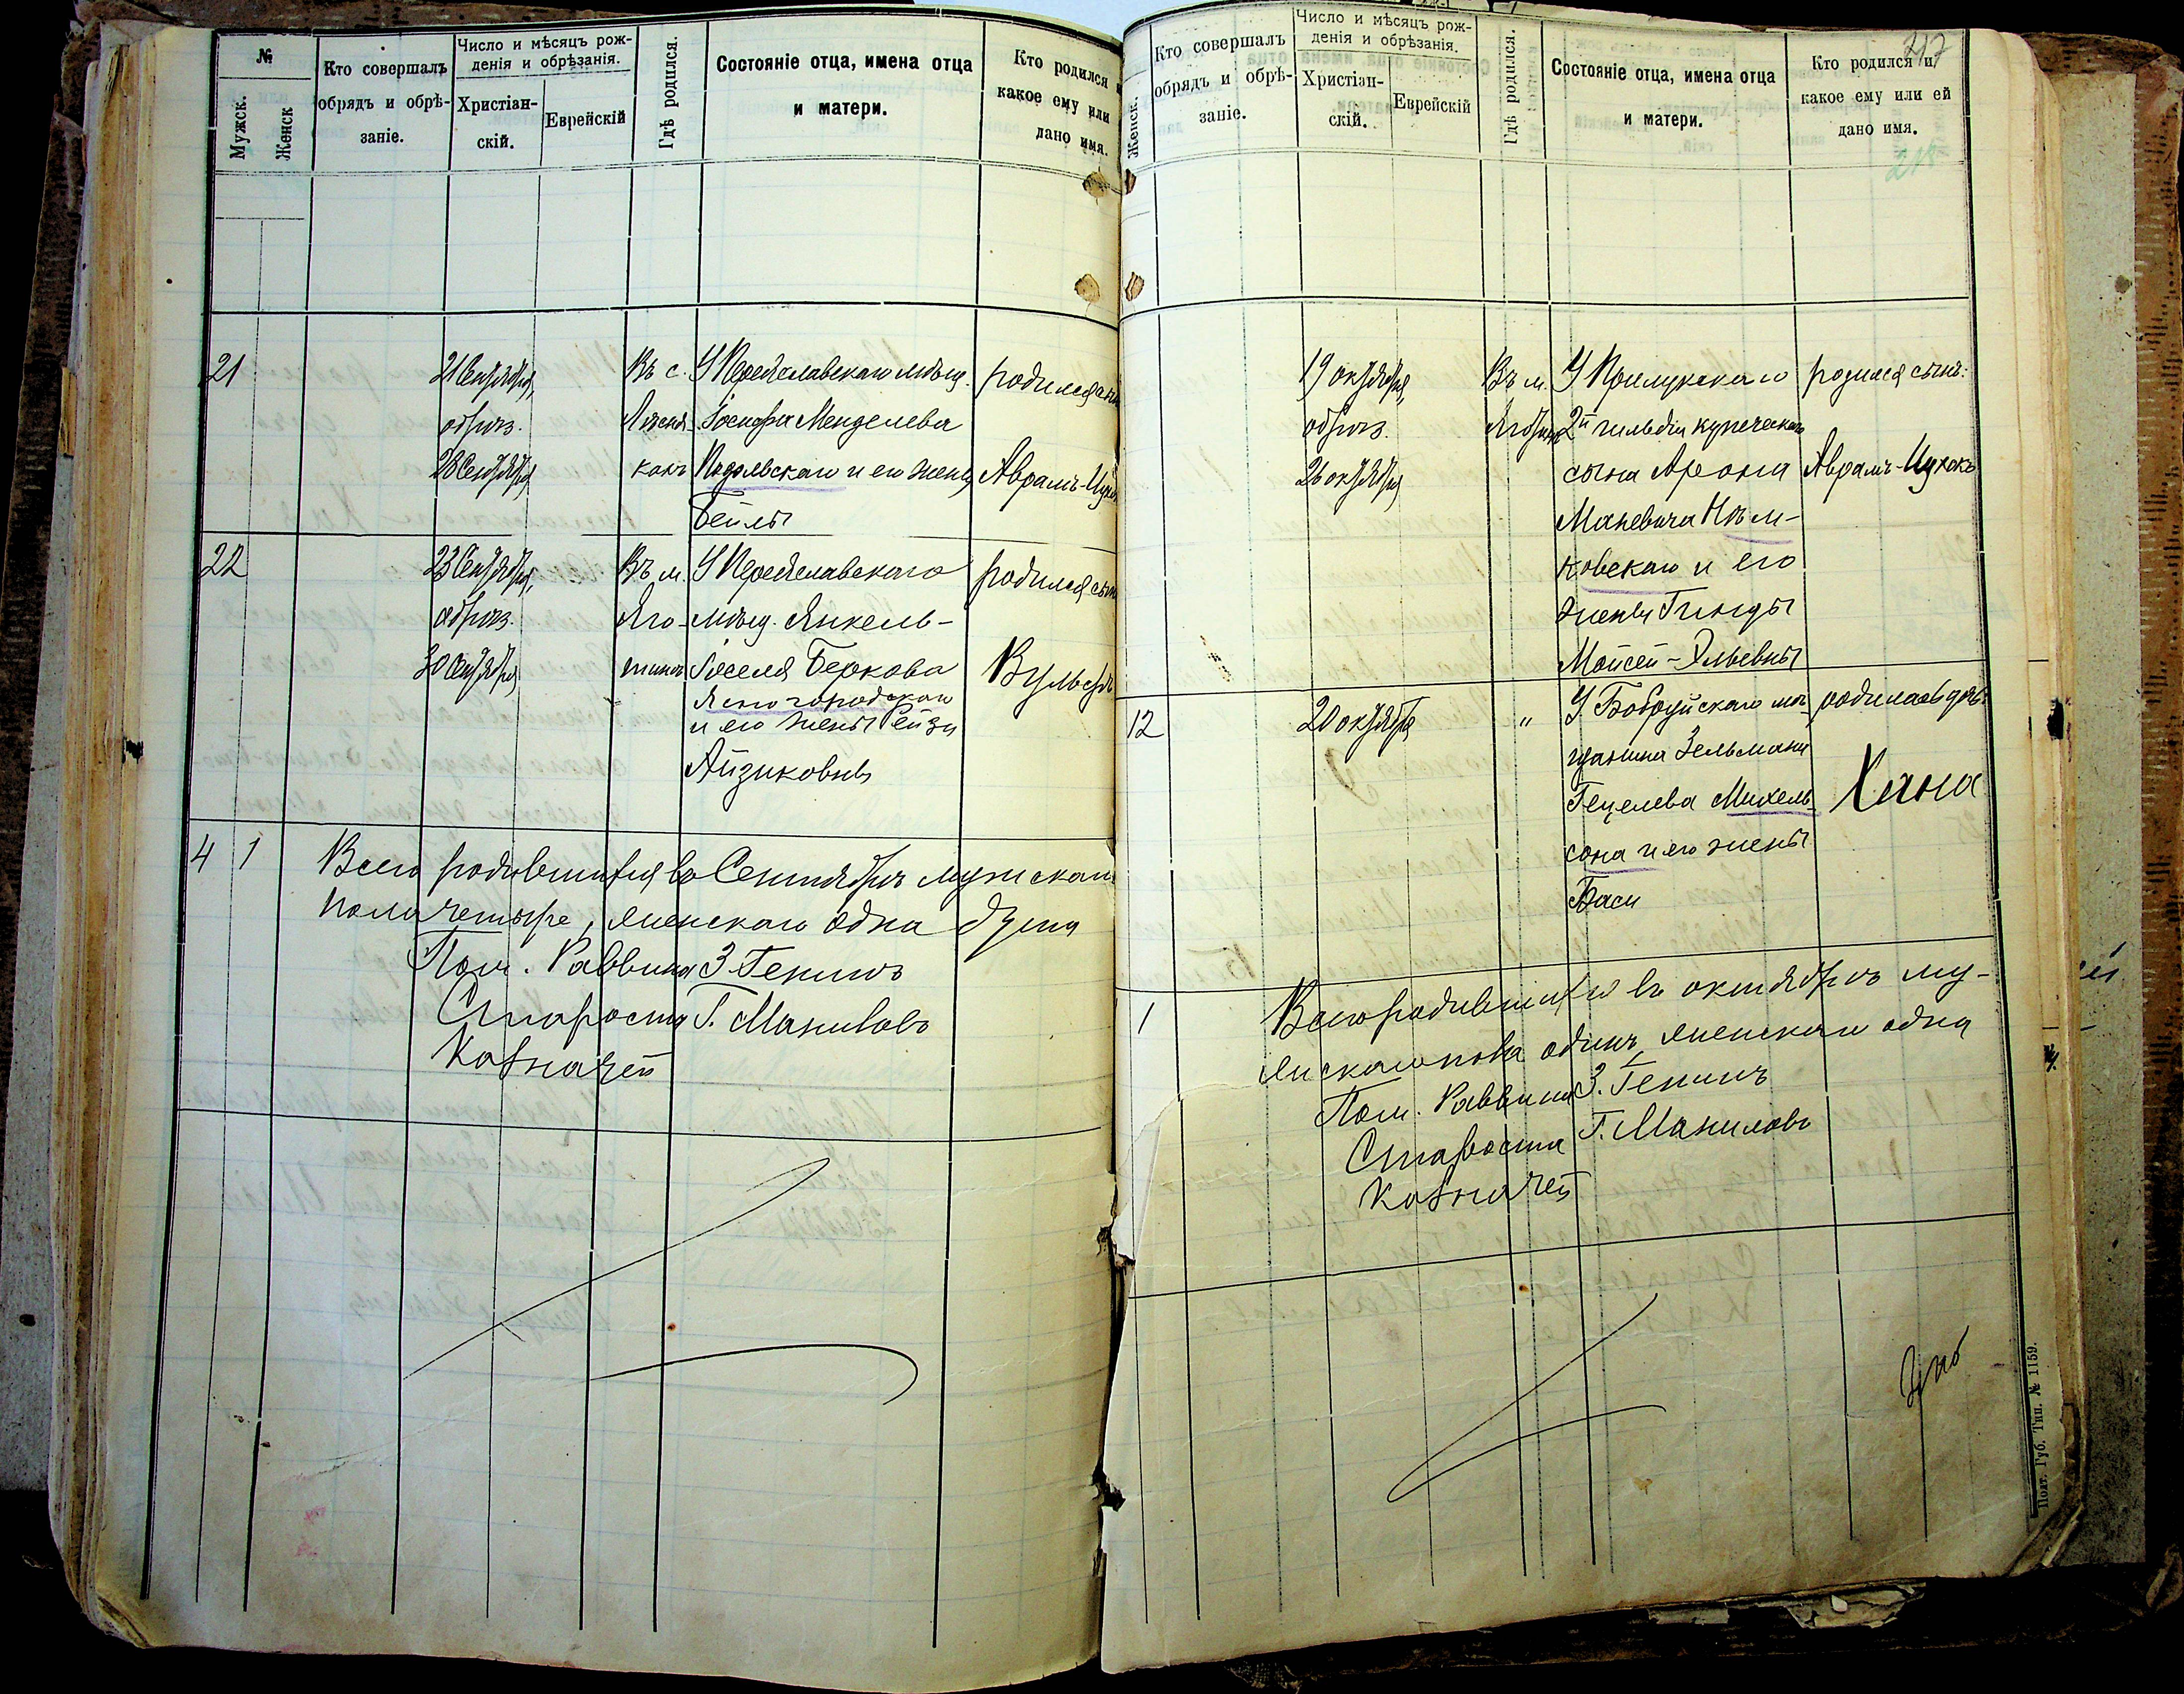 №
Мужск.
Женск
Кто совершалъ
обрядъ и обрѣ-
заніе.
Число и мѣсяцъ рож-
денія и обрѣзанія.
Христіан-
скій.
Еврейскій
Гдѣ родился.
Состояніе отца, имена отца
и матери.
Кто родился и
какое ему или
дано имя.
21
21 Сентября,
обрѣз.
28 Сентября
Въ с.
У Переяславскаго мѣщ.
Іосифа Менделева
Подольскаго и его жены
Бейлы
родился сынъ
Аврамъ-Ицхокъ
22
23 Сентября,
обрѣз.
30 Сентября
Въ м.
Яго-
тинѣ
У Переяславскаго
мѣщ. Янкель-
Іоселя Беркова
Ясногородскаго
и его жены Рейзи
Айзиковны
родился сынъ
Вульфъ
4 1
Всего родившихся въ Сентябрѣ мужскаго
пола четыре, женскаго одна душа
Пом. Раввина З. Генинъ
Староста Г. Маниловъ
Казначей
Женск.
Кто совершалъ
обрядъ и обрѣ-
заніе.
Число и мѣсяцъ рож-
денія и обрѣзанія.
Христіан-
скій.
Еврейскій
Гдѣ родился.
Состояніе отца, имена отца
и матери.
Кто родился и
какое ему или ей
дано имя.
217
218
19 октября,
обрѣз.
26 октября
Въ м.
У Прилукскаго
2й гильдіи купеческаго
сына Арона
Маневича Нѣм-
ковскаго и его
жены Гинды
Мойсей-Эльевны
родился сынъ:
Аврамъ-Ицхокъ
12
20 октября
"
У Бобруйскаго мѣ-
щанина Зельмана
Гецелева Михель-
сона и его жены
Баси
родилась дочь
Хана
1
Всего родившихся въ октябрѣ му-
жскаго пола одинъ, женскаго одна
Пом. Раввина З. Генинъ
Староста Г. Маниловъ
Казначей
Полт. Губ. Тип. № 1159.